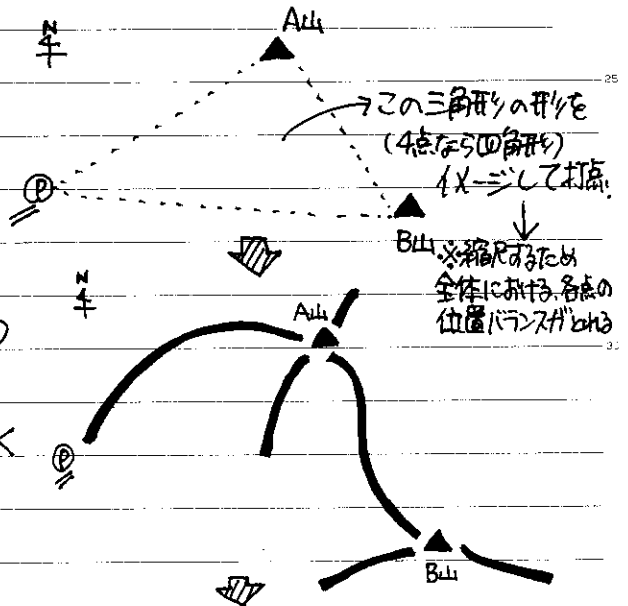 N
A山
25
この三角形の形を
(4点なら四角形)
イメージして打点.
P
B山
※縮尺するため
全体における、各点の
位置バランスがとれる
N
A山
30
く
P
B山